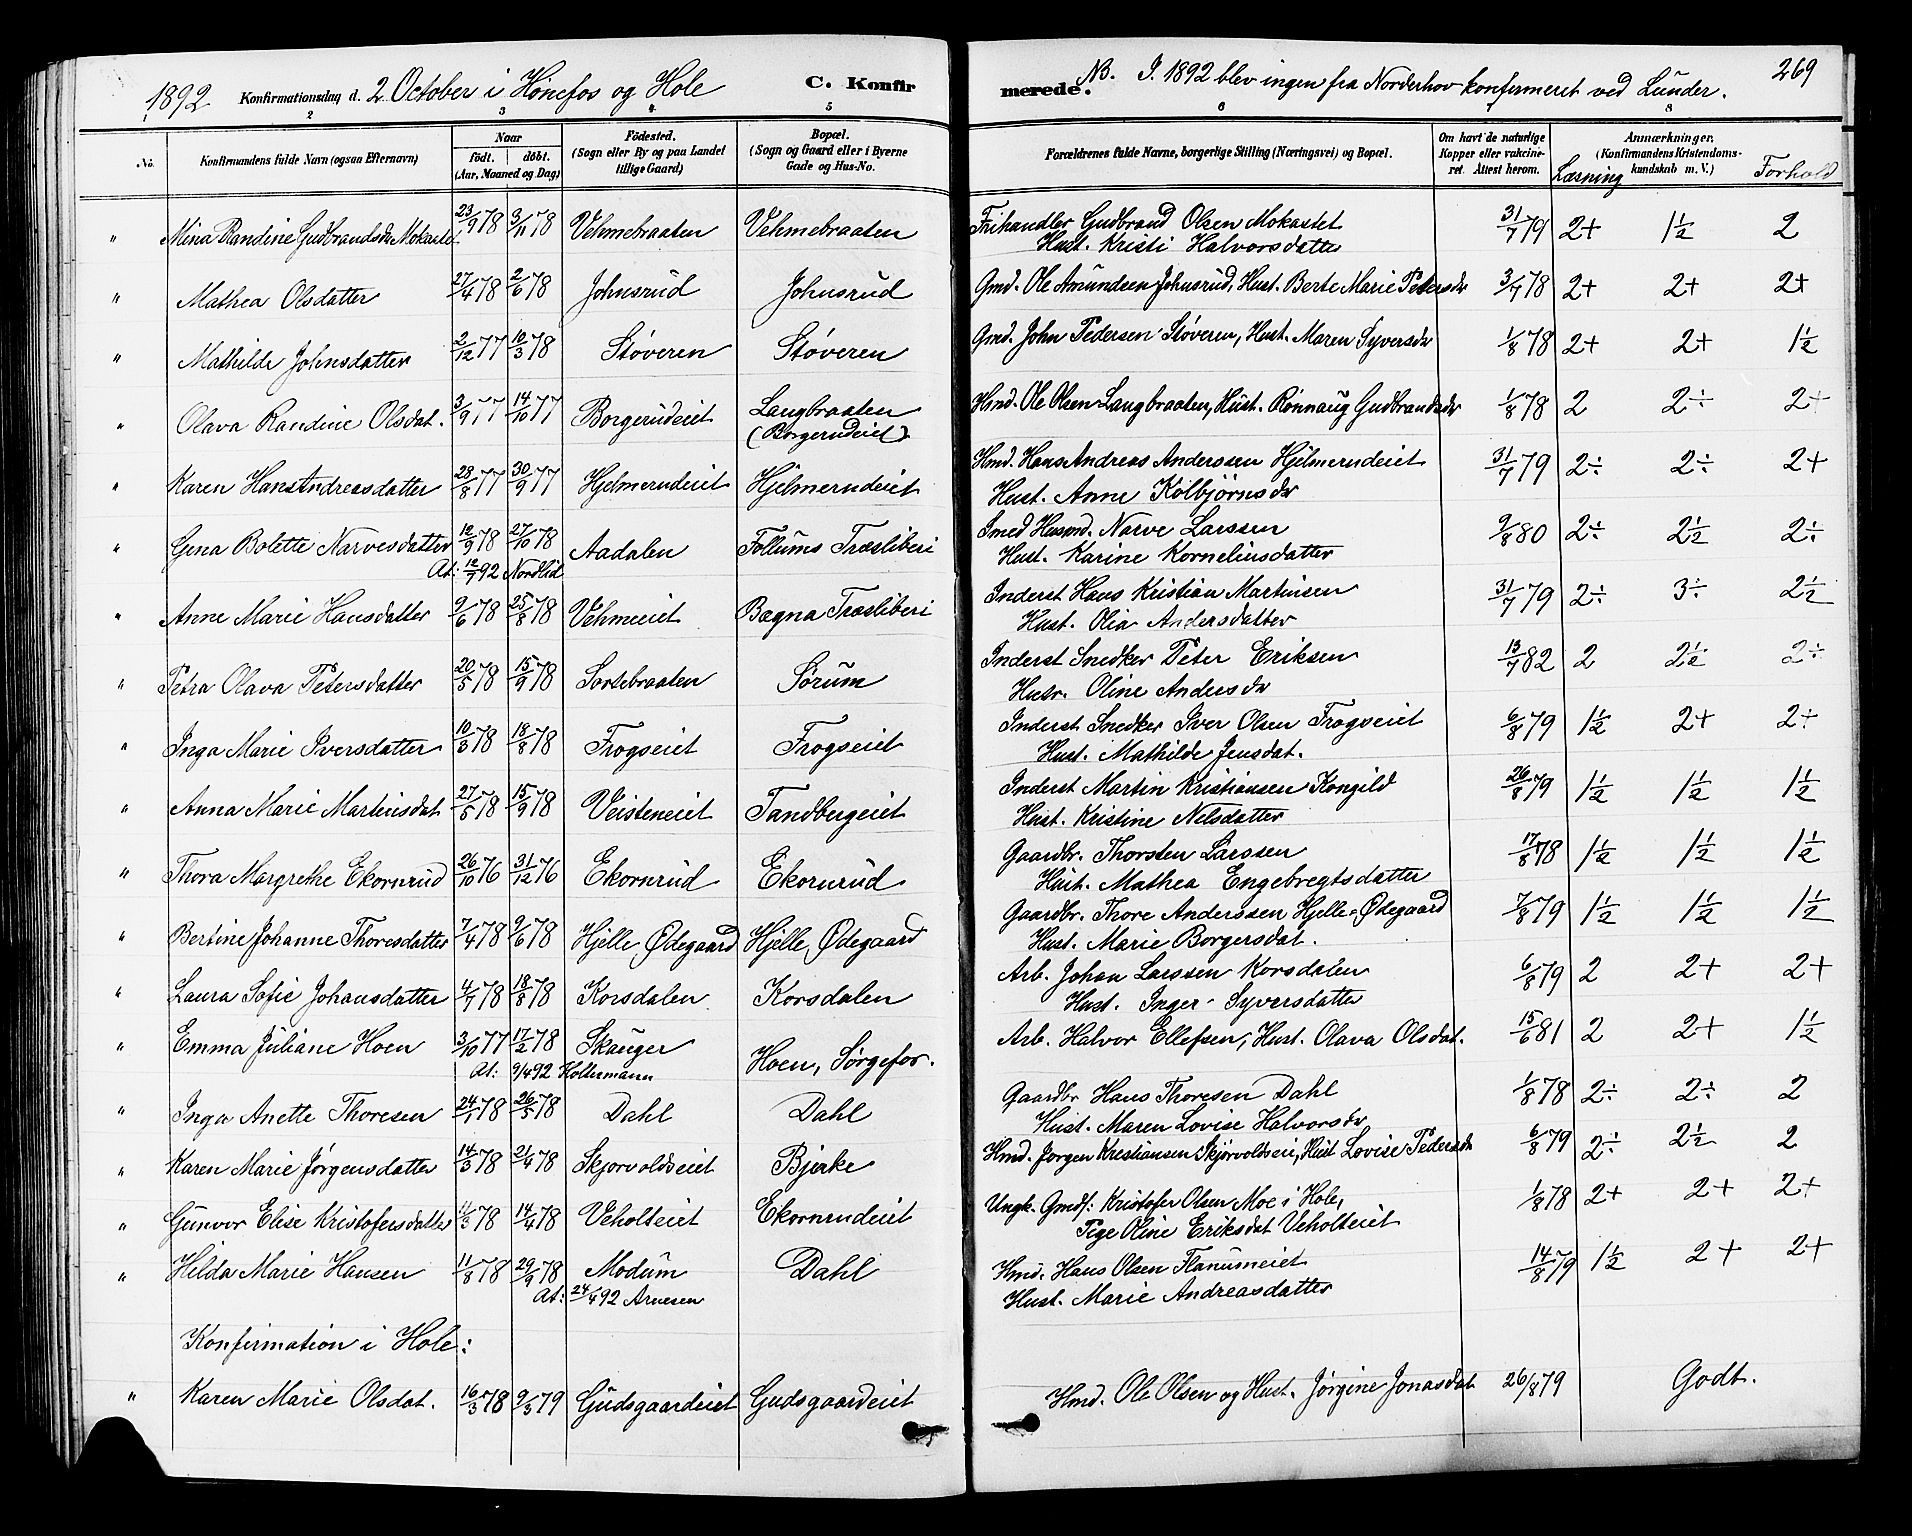 1892 Konfirmationsdag d. 2 October i Hönefos og Hole C. Konfir
merede. NB. I 1892 blev ingen fra Norderhov konfirmeret ved Lunder. 269
1 2 3 4 5 6 7 8
No. Konfirmandens fulde Navn (ogsaa Efternavn) Naar födt. döbt. (Aar, Maaned og Dag) Födested. (Sogn eller By og paa Landet tillige Gaard) Bopæl. (Sogn og Gaard eller i Byerne Gade og Hus-No. Forældrenes fulde Navne, borgerlige Stilling (Næringsvei) og Bopæl. Om havt de naturlige Kopper eller vakcineret. Attest herom. Anmærkninger. (Konfirmandens Kristendomskundskab m. V.) Læsning Forhold
" Mina Randine Gudbrandsdr Mokastet 23/9 78 3/11 78 Vehmebraaten Vehmebraaten Frihandler Gudbrand Olsen Mokastet 31/7 79 2+ 1½ 2
Hust. Kristi Halvorsdatter
" Mathea Olsdatter 27/4 78 2/6 78 Johnsrud Johnsrud Gmd. Ole Amundsen Johnsrud, Hust. Berte Marie Petersdr 3/7 78 2+ 2+ 2+
" Mathilde Johnsdatter 2/12 77 10/3 78 Støveren Støveren Gmd. John Pedersen Støveren, Hust. Maren Syversdr 1/8 78 2+ 2+ 1½
" Olava Randine Olsdat. 3/9 77 14/10 77 Borgerudeiet Langbraaten Hmd. Ole Olsen Langbraaten, Hust. Rønnaug Gudbrandsdr 1/8 78 2 2÷ 2+
(Borgerudeiet)
" Karen HansAndreasdatter 28/8 77 30/9 77 Hjelmerudeiet Hjelmerudeiet Hmd. HansAndreas Anderssen Hjelmerudeiet 31/7 79 2÷ 2÷ 2+
Hust. Anne Kolbjørnsdr
" Gina Bolette Narvesdatter 12/9 78 27/10 78 Aadalen Follums Træsliberi Smed Husmd. Narve Larssen 9/8 80 2÷ 2½ 2÷
At: 12/7 92 Nordlid Hust. Karine Korneliusdatter
" Anne Marie Hansdatter 9/6 78 25/8 78 Vehmeeiet Bagna Træsliberi Inderst Hans Kristian Martinsen 31/7 79 2÷ 3÷ 2½
Hust. Olia Andersdatter
" Petra Olava Petersdatter 20/5 78 15/9 78 Sortebraaten Sørum Inderst Snedker Peter Eriksen 13/7 82 2 2½ 2÷
Hustr. Oline Andersdr
" Inga Marie Iversdatter 10/3 78 18/8 78 Frogseiet Frogseiet Inderst Snedker Iver Olsen Frogseiet 6/8 79 1½ 2+ 2÷
Hust. Mathilde Jensdat.
" Anna Marie Martinsdat 27/5 78 15/9 78 Veisteneiet Tandbergeiet Inderst Martin Kristiansen Kongild 26/8 79 1½ 1½ 1½
Hust. Kristine Nelsdatter
" Thora Margrethe Ekornrud 26/10 76 31/12 76 Ekornrud Ekornrud Gaardbr. Thorsten Larssen 17/8 78 1½ 1½ 1½
Hust. Mathea Engebregtsdatter
" Bertine Johanne Thoresdatter 7/4 78 9/6 78 Hjelle, Ødegaard Hjelle, Ødegaard Gaardbr. Thore Anderssen Hjelle-Ødegaard 7/8 79 1½ 1½ 1½
Hust. Marie Borgersdat.
" Laura Sofie Johansdatter 4/7 78 18/8 78 Korsdalen Korsdalen Arb. Johan Larssen Korsdalen 6/8 79 2 2+ 2+
Hust. Inger Syversdatter
" Emma Juliane Hoen 3/10 77 17/2 78 Skauger Hoen, Sørgefos. Arb. Halvor Ellefsen, Hust. Olava Olsdat. 15/6 81 2 2+ 1½
At: 9/4 92 Holtermann
" Inga Anette Thoresen 24/1 78 26/5 78 Dahl Dahl Gaardbr Hans Thoresen Dahl 1/8 78 2÷ 2÷ 2
Hust. Maren Lovise Halvorsdr
" Karen Marie Jørgensdatter 14/3 78 21/4 78 Skjørvoldseiet Bjerke Hmd. Jørgen Kristiansen Skjørvoldsei, Hust Lovise Pedersdr 6/8 79 2÷ 2½ 2
" Gunvor Elise Kristofersdatter 11/3 78 14/4 78 Veholteiet Ekornrudeiet Ungk. Gmdf: Kristofer Olsen Moe i Hole, 1/8 78 2+ 2+ 2+
Pige Oline Eriksdat Veholteiet
" Hilda Marie Hansen 11/8 78 29/9 78 Modum Dahl Hmd. Hans Olsen Flanumeiet 14/8 79 1½ 2+ 2+
At: 24/4 92 Arnesen Hust. Marie Andreasdatter
Konfirmation i Hole:
" Karen Marie Olsdat. 16/3 78 9/3 79 Gudsgaardeiet Gudsgaardeiet Hmd. Ole Olsen og Hust. Jørgine Jonasdat 26/8 79 Godt.